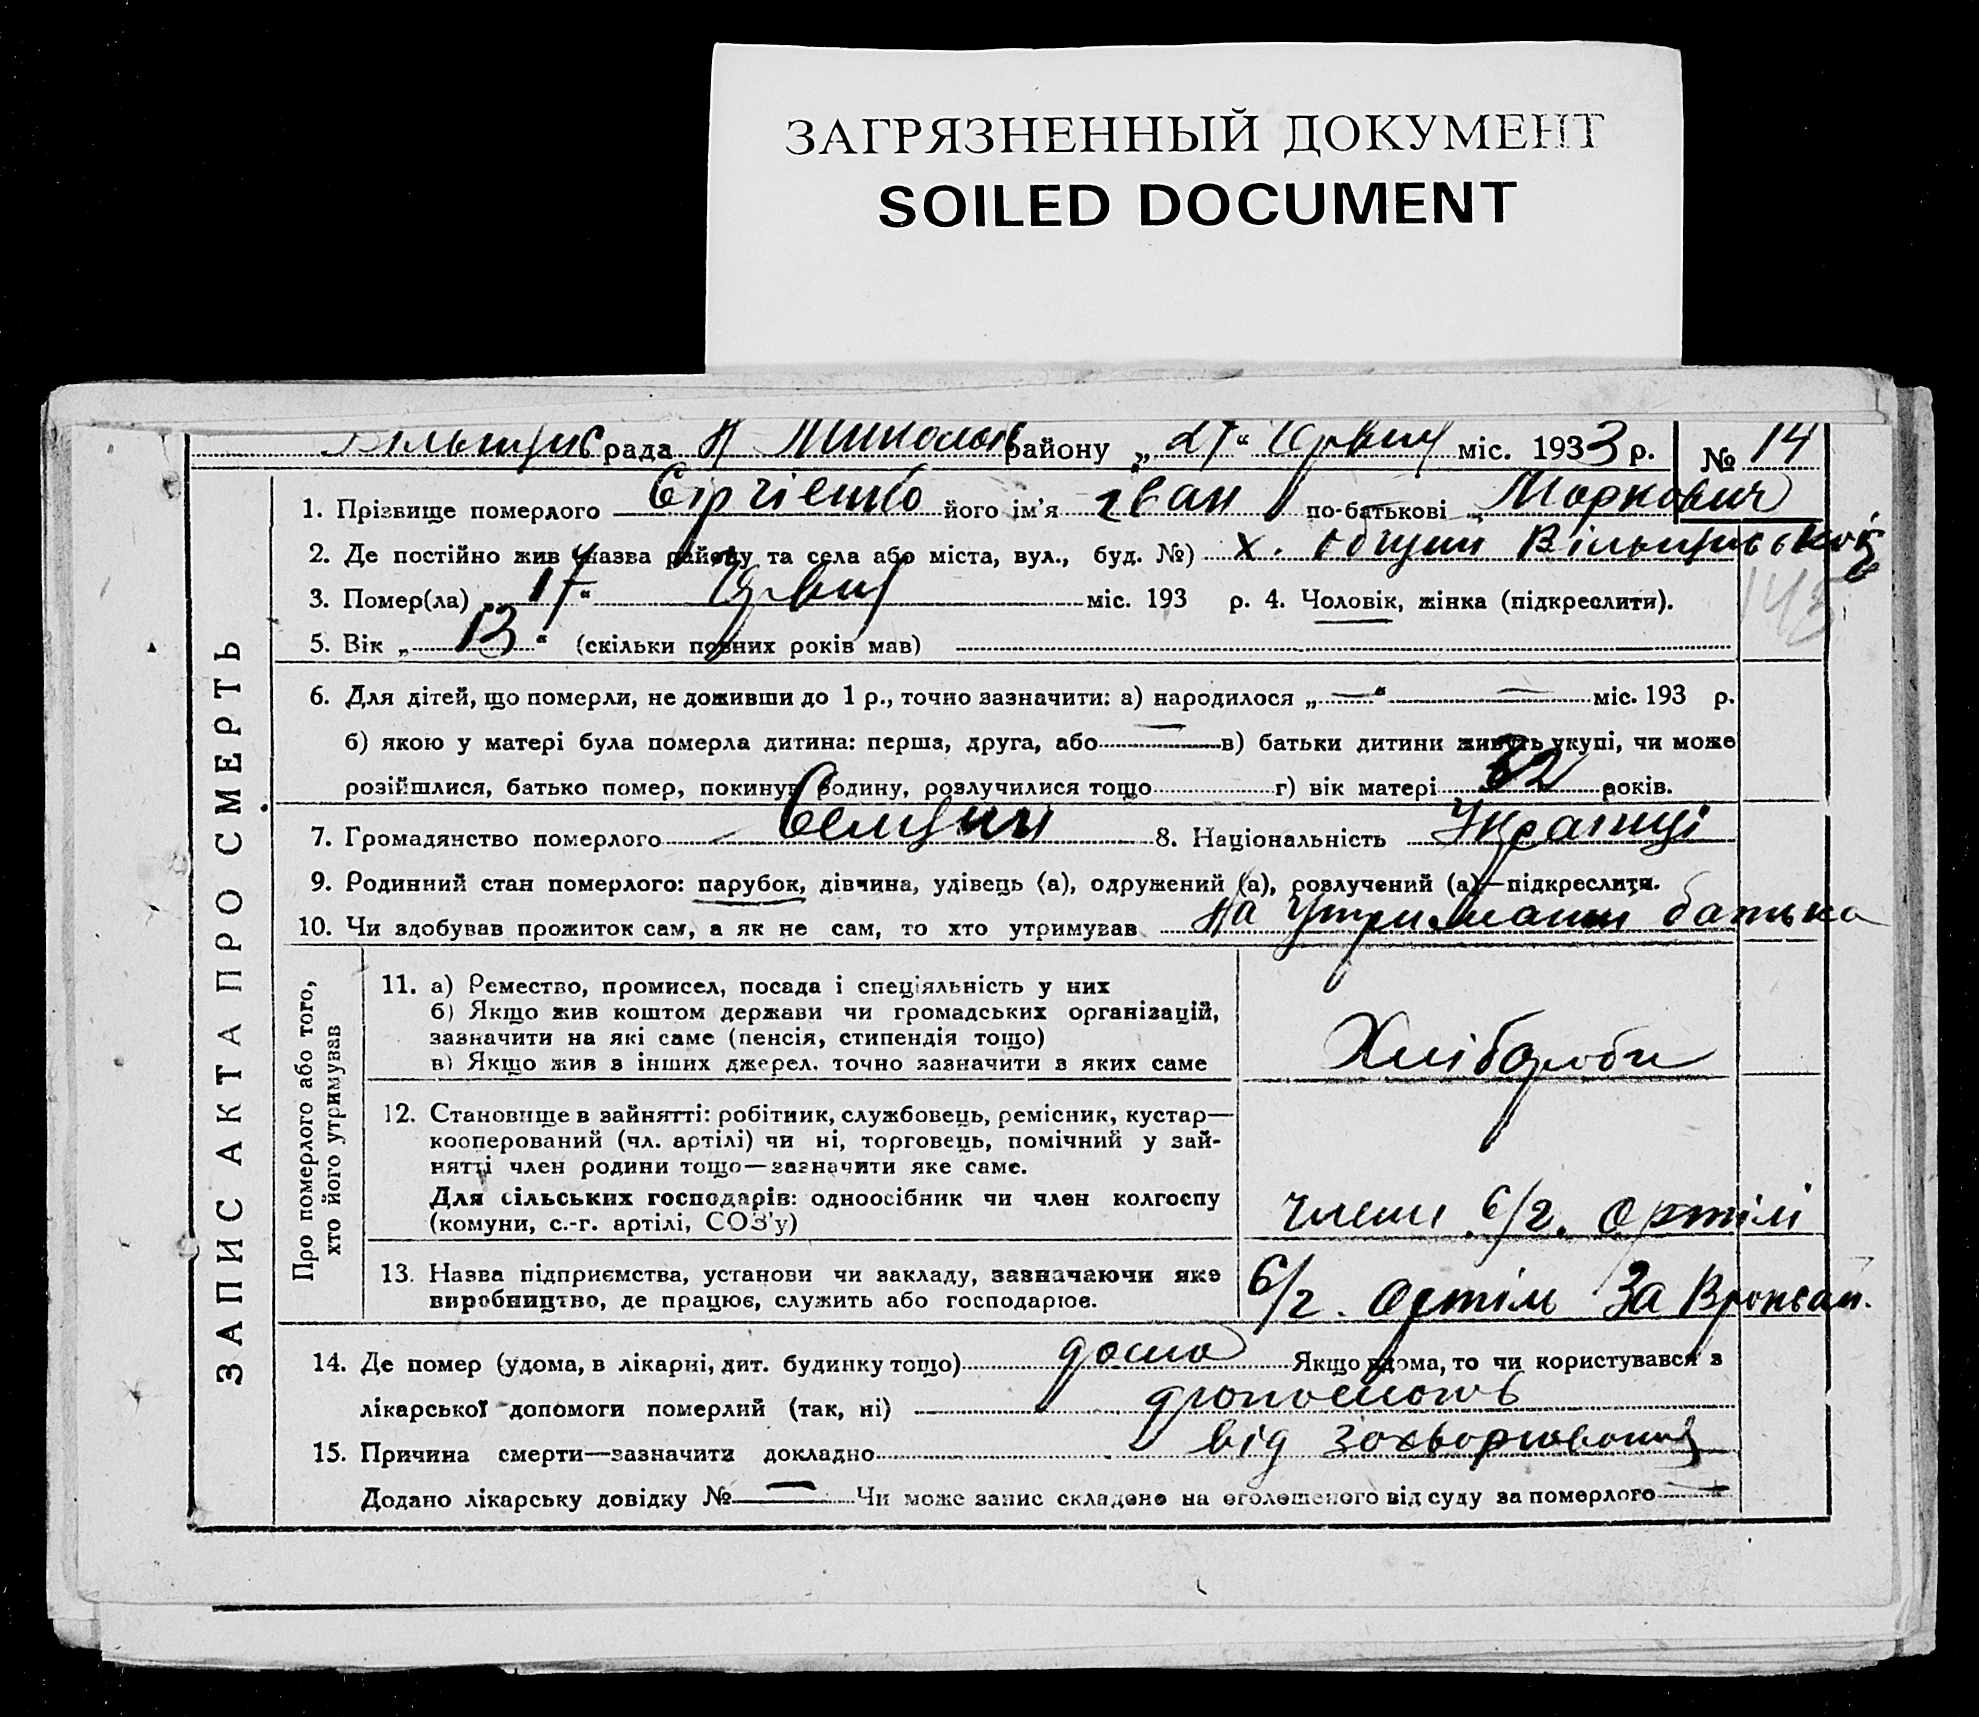 ЗАГРЯЗНЕННЫЙ ДОКУМЕНТ
SOILED DOCUMENT
рада Н Миколаїв району „27“ Червня міс. 1933 р. № 14
ЗАПИС АКТА ПРО СМЕРТЬ
1. Прізвище померлого Сергієнко його ім'я Іван по-батькові Маркович
2. Де постійно жив (назва району та села або міста, вул., буд. №) х.
3. Помер(ла) „17“ Червня міс. 193 р. 4. Чоловік, жінка (підкреслити).
143
5. Вік „13“ (скільки повних років мав)
6. Для дітей, що померли, не доживши до 1 р., точно зазначити: а) народилося „—“ — міс. 193 р.
б) якою у матері була померла дитина: перша, друга, або — в) батьки дитини живуть укупі, чи може
розійшлися, батько помер, покинув родину, розлучилися тощо г) вік матері 32 років.
7. Громадянство померлого Селянин 8. Національність Українці
9. Родинний стан померлого: парубок, дівчина, удівець (а), одружений (а), розлучений (а)—підкреслити.
10. Чи здобував прожиток сам, а як не сам, то хто утримував на утриманні батька
Про померлого або того,
хто його утримував
11. а) Ремество, промисел, посада і спеціяльність у них
б) Якщо жив коштом держави чи громадських організацій,
зазначити на які саме (пенсія, стипендія тощо)
в) Якщо жив з інших джерел, точно зазначити з яких саме
Хлібороби
12. Становище в зайнятті: робітник, службовець, ремісник, кустар—
кооперований (чл. артілі) чи ні, торговець, помічний у зай-
нятті член родини тощо—зазначити яке саме.
Для сільських господарів: одноосібник чи член колгоспу
(комуни, с.-г. артілі, СОЗ'у)
Члени с/г. Артілі
13. Назва підприємства, установи чи закладу, зазначаючи яке
виробництво, де працює, служить або господарює.
с/г. Артіль За
14. Де помер (удома, в лікарні, дит. будинку тощо) дома Якщо вдома, то чи користувався з
лікарської допомоги померлий (так, ні)
15. Причина смерти—зазначити докладно від захворювання
Додано лікарську довідку № — Чи може запис складено на оголошеного від суду за померлого —